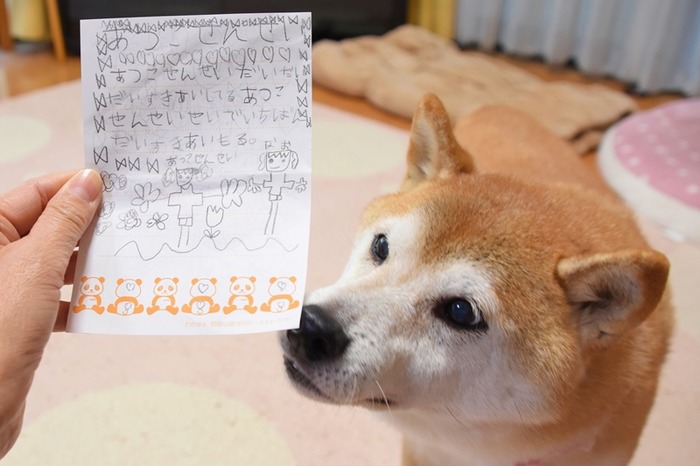 あつこせんせい
あつこせんせいだいすき
だいすきあいしてるあつこ
せんせいせいでいちばん
だいすきあいもる。
あつこせんせい